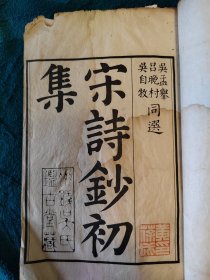 吳孟舉
呂晚村
吳自牧
同選
宋詩鈔初
集